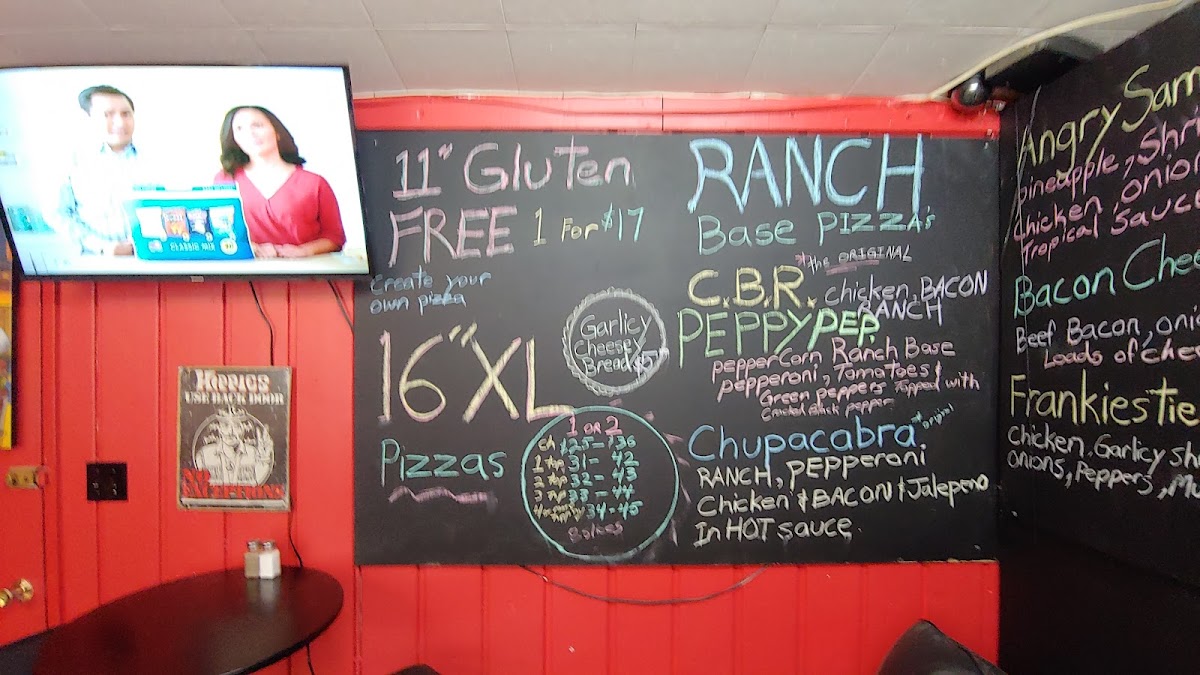 11" Gluten
FREE 1 For $17
Create your
own pizza
16" XL
Pizzas
Garlicy
Cheesey
Bread
1 OR 2
CH $25 - $36
1 Top 31 - 42
2 Top 32 - 43
3 Top 33 - 44
34 - 45
RANCH
Base PIZZA's
*the ORIGINAL
C.B.R. Chicken, BACON
RANCH
PEPPYPEP.
pepperCorn Ranch Base
pepperoni, Tomatoes &
Green peppers Topped with
Cracked black pepper
Chupacabra. *original
RANCH, PEPPERONI
Chicken & BACON & Jalepeno
In HOT sauce.
Angry Sam
pineapple, Shri
Chicken, onion
Tropical Sauce
Bacon Chee
Beef Bacon, onio
Loads of chee
Frankiestie
Chicken, Garlicy sh
onions, Peppers, M
HIPPIES
USE BACK DOOR
NO
EXCEPTIONS
CLASSIC MIX